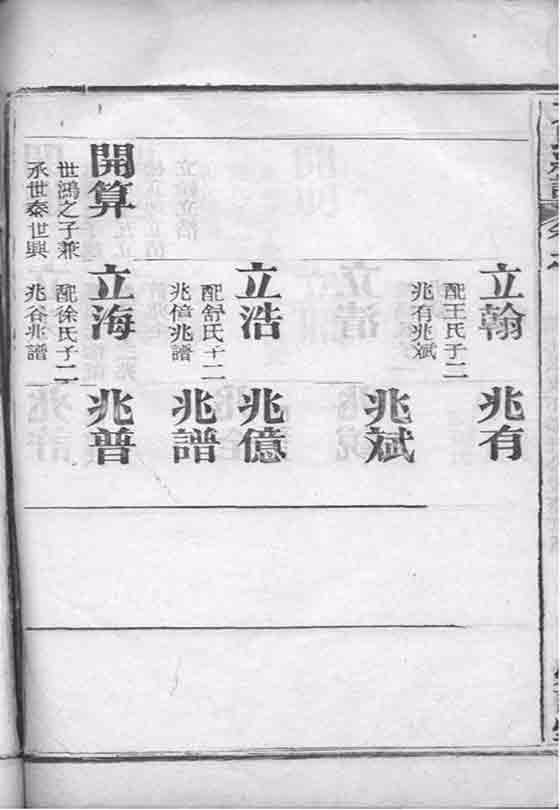 立翰
配王氏子二
兆有兆斌
兆有
兆斌
立浩
配舒氏子二
兆億兆譜
兆億
兆譜
開算
世鴻之子兼
承世泰世興
立海
配徐氏子二
兆谷兆譜
兆普